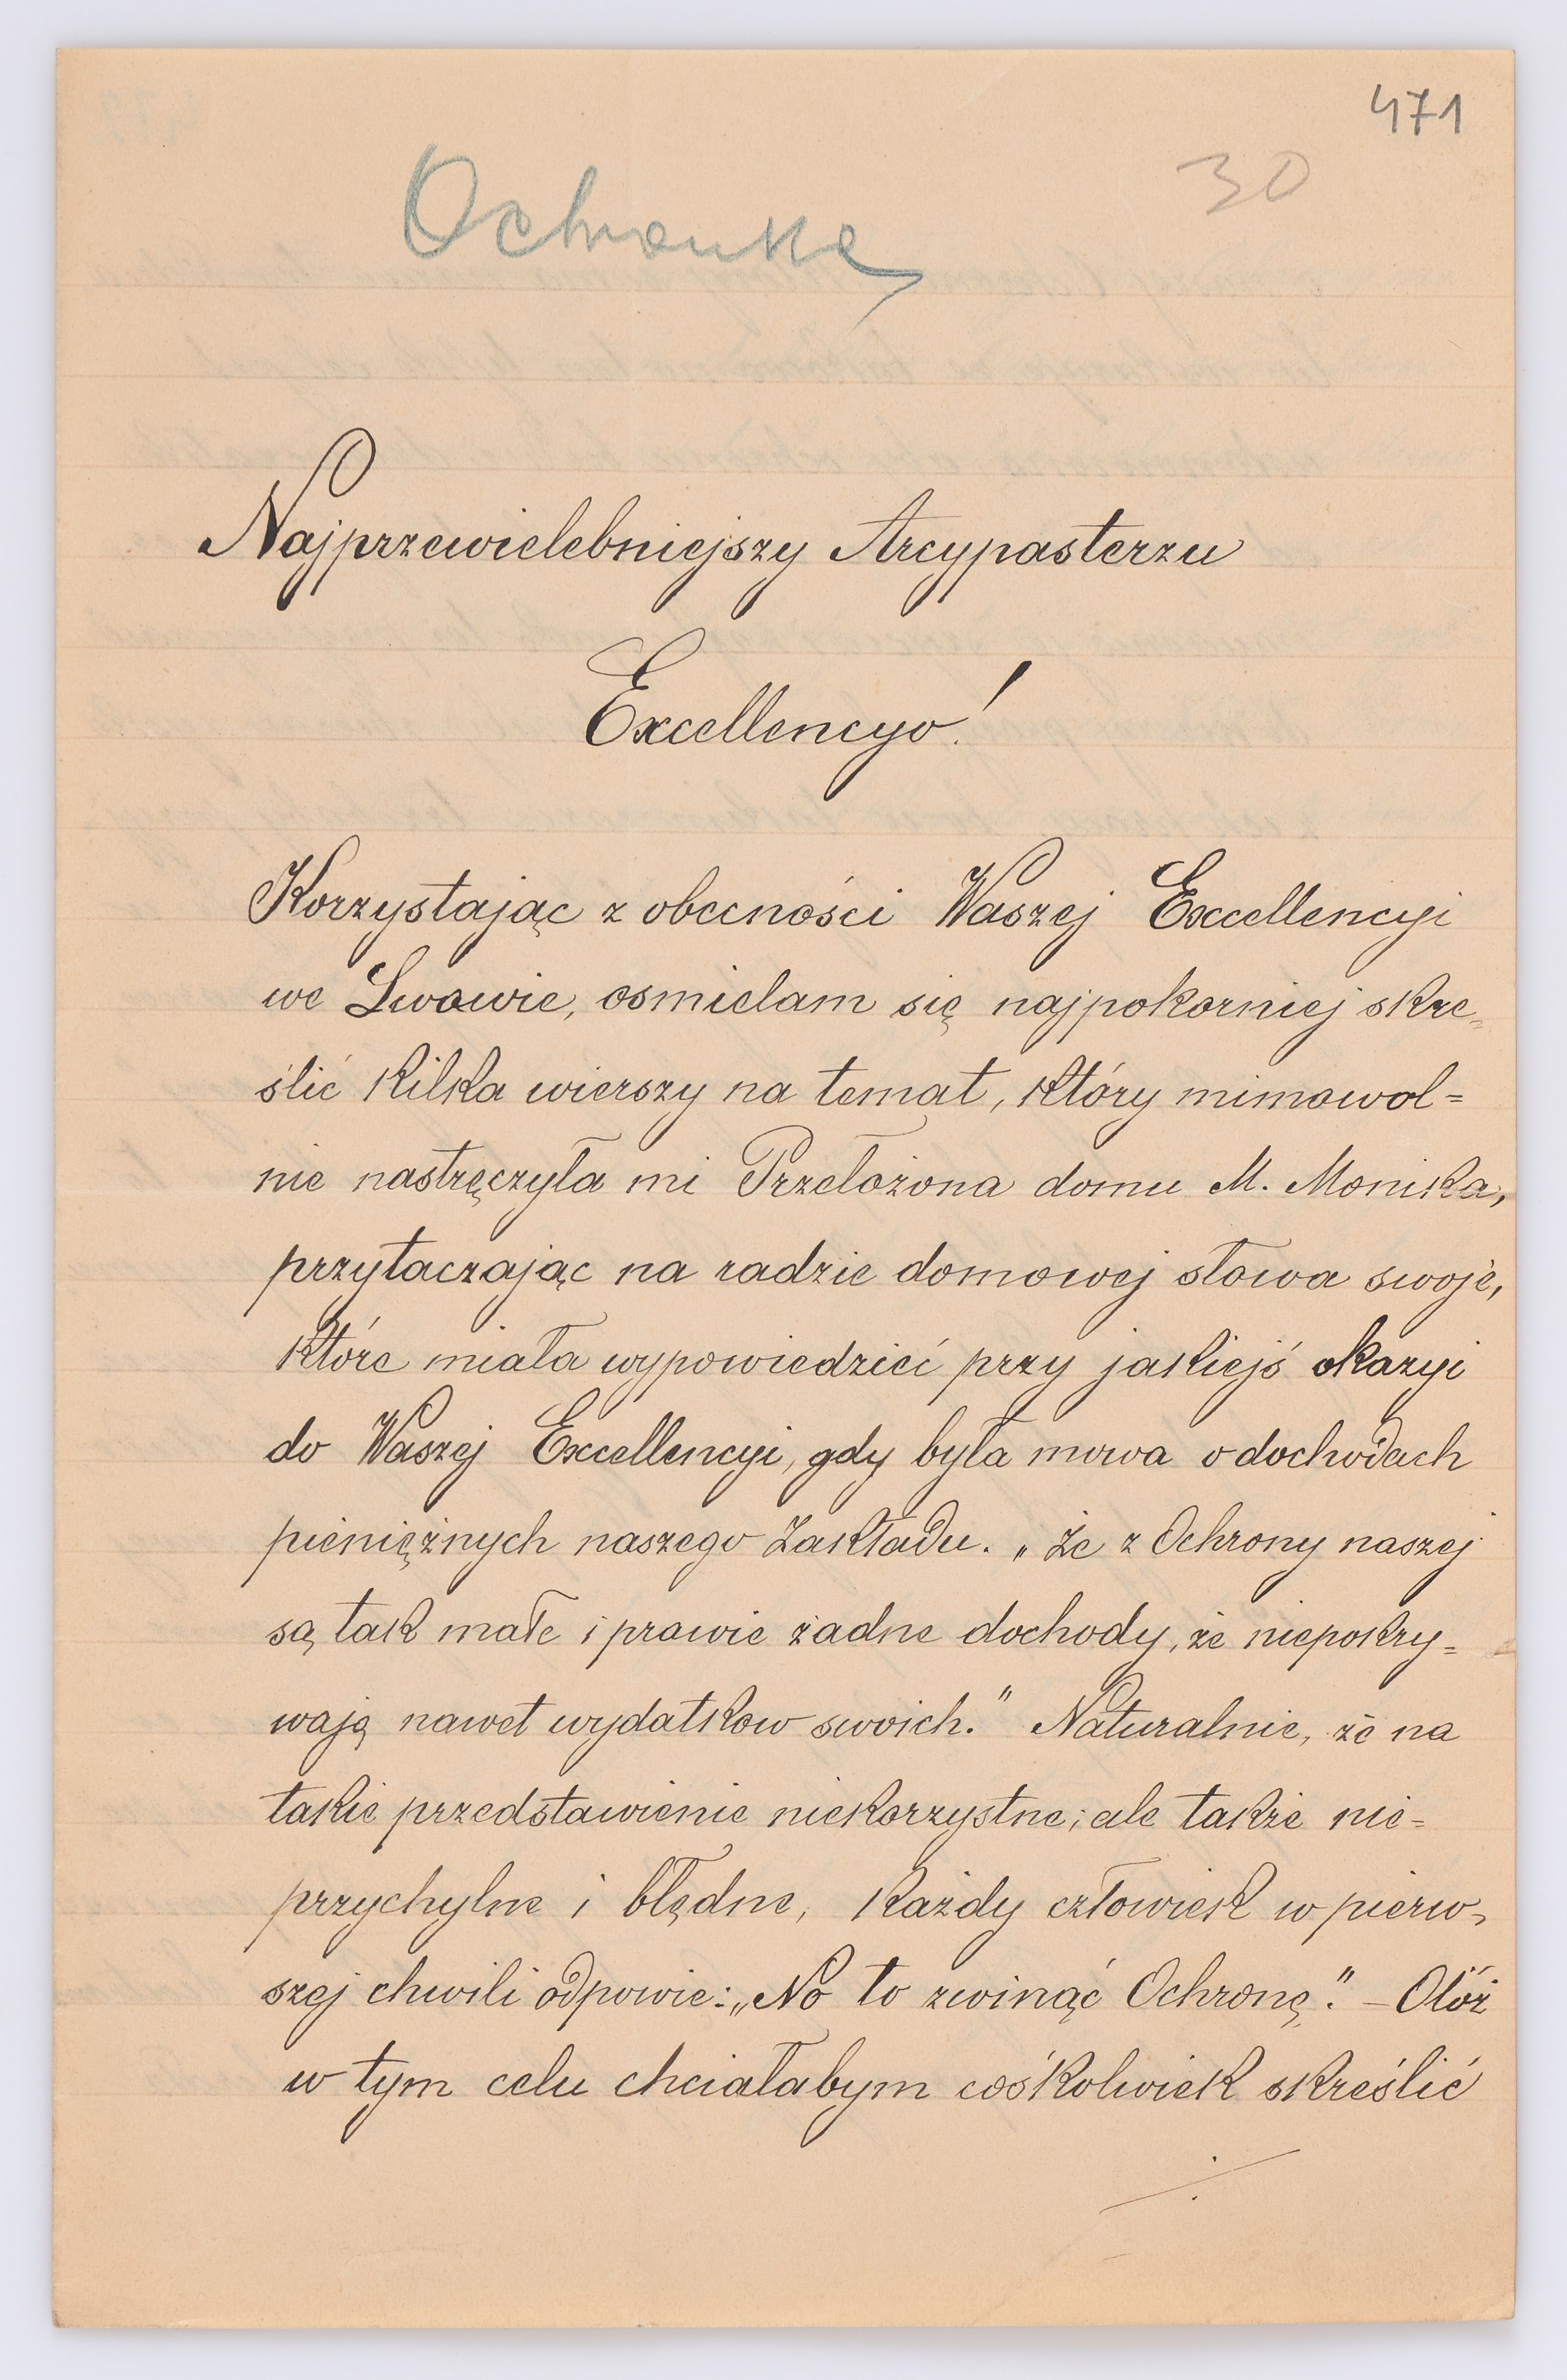 471
30
Ochronka
Najprzewielebniejszy Arcypasterzu
Excellencyo!
Korzystając z obecności Waszej Excellencyi
we Lwowie, osmielam się najpokorniej skre=
ślić kilka wierszy na temat, który mimowol=
nie nastręczyła mi Przełożona domu M. Monika,
przytaczając na radzie domowej słowa swoje,
które miała wypowiedzieć przy jakiejś okazyi
do Waszej Excellencyi, gdy była mowa o dochodach
pieniężnych naszego Zakładu. „Że z Ochrony naszej
są tak małe i prawie żadne dochody, że niepokry=
wają nawet wydatkow swoich." Naturalnie, że na
takie przedstawienie niekorzystne; ale także nie=
przychylne i błędne, każdy człowiek w pierw=
szej chwili odpowie: „No to zwinąć Ochronę." – Otóż
w tym celu chciałabym cośkolwiek skreślić
./.